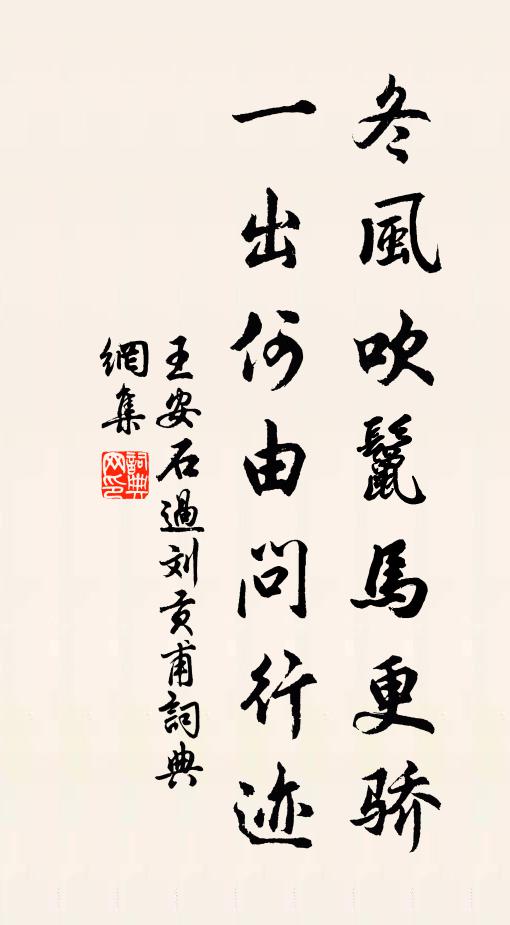 冬風吹鬣馬更骄
一出何由問行迹
王安石過刘贡甫詞典
網集
詞典网印